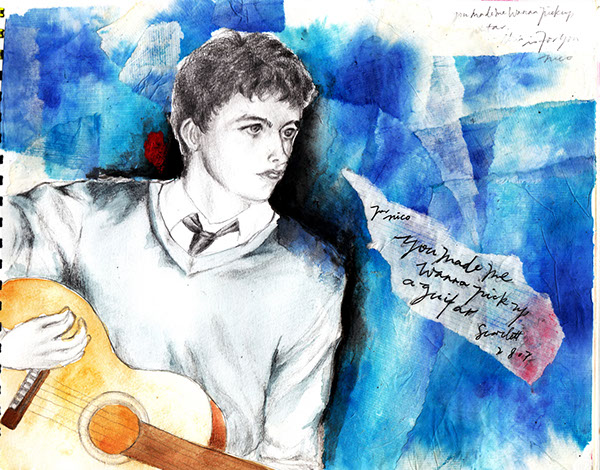 you made me wanna pick up
for you
nico
for
nico
you made me
wanna pick up
a guitar
Scarlett